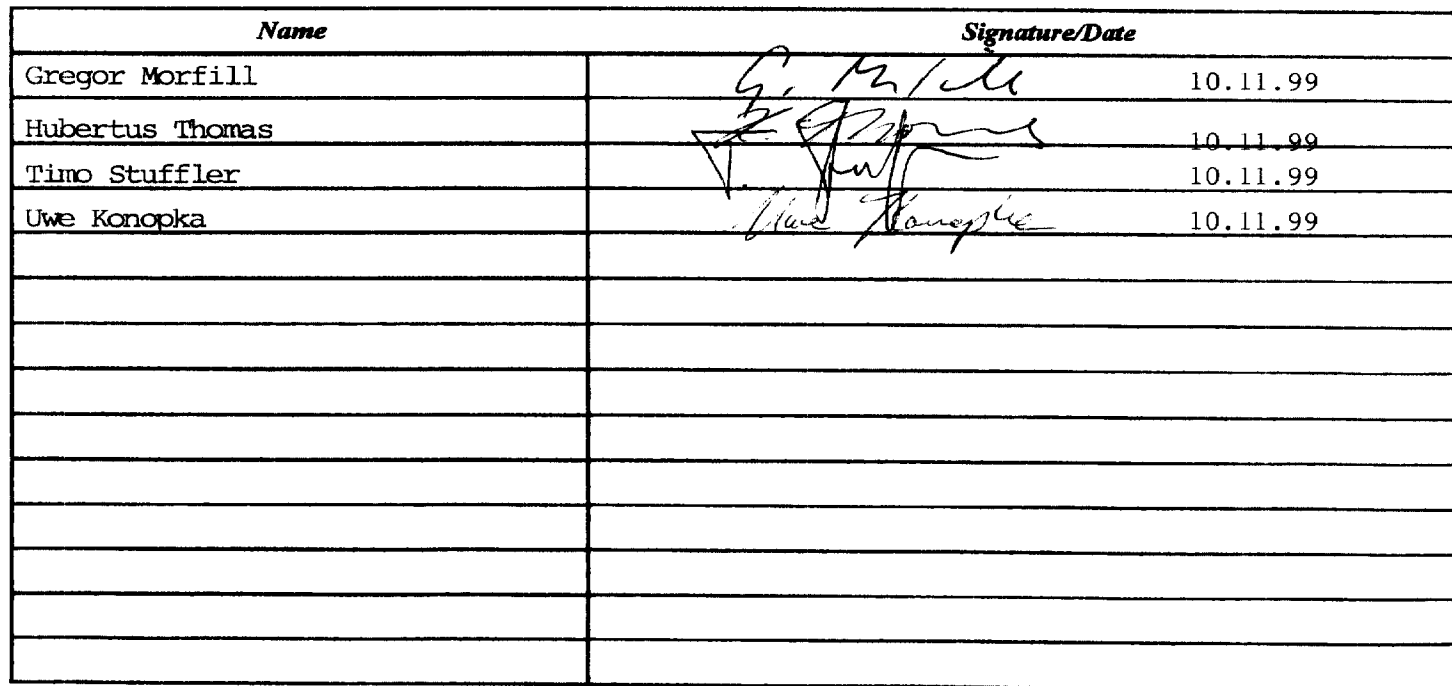 Name Signature/Date
Gregor Morfill G. Morfill 10.11.99
Hubertus Thomas H. Thomas 10.11.99
Timo Stuffler T. Stuff 10.11.99
Uwe Konopka Uwe Konopka 10.11.99